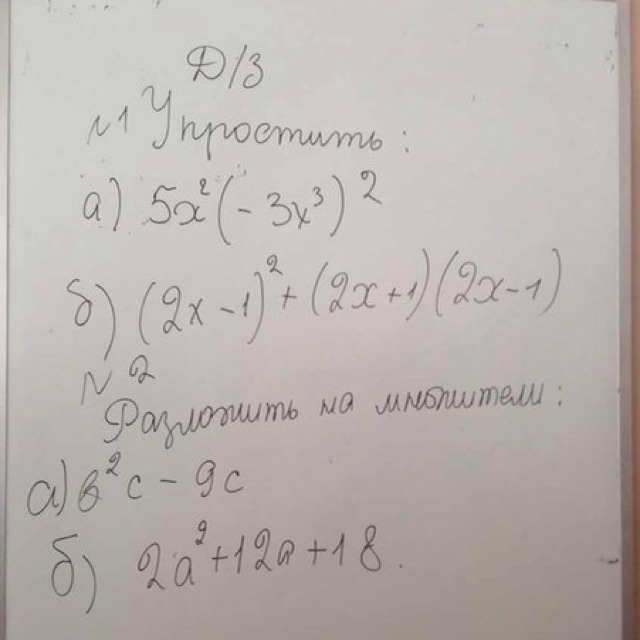 Д/З
№1 Упростить:
а) 5x²(-3x³)²
б) (2x-1)²+(2x+1)(2x-1)
№2
Разложить на множители:
а) в²с-9с
б) 2а²+12а+18.